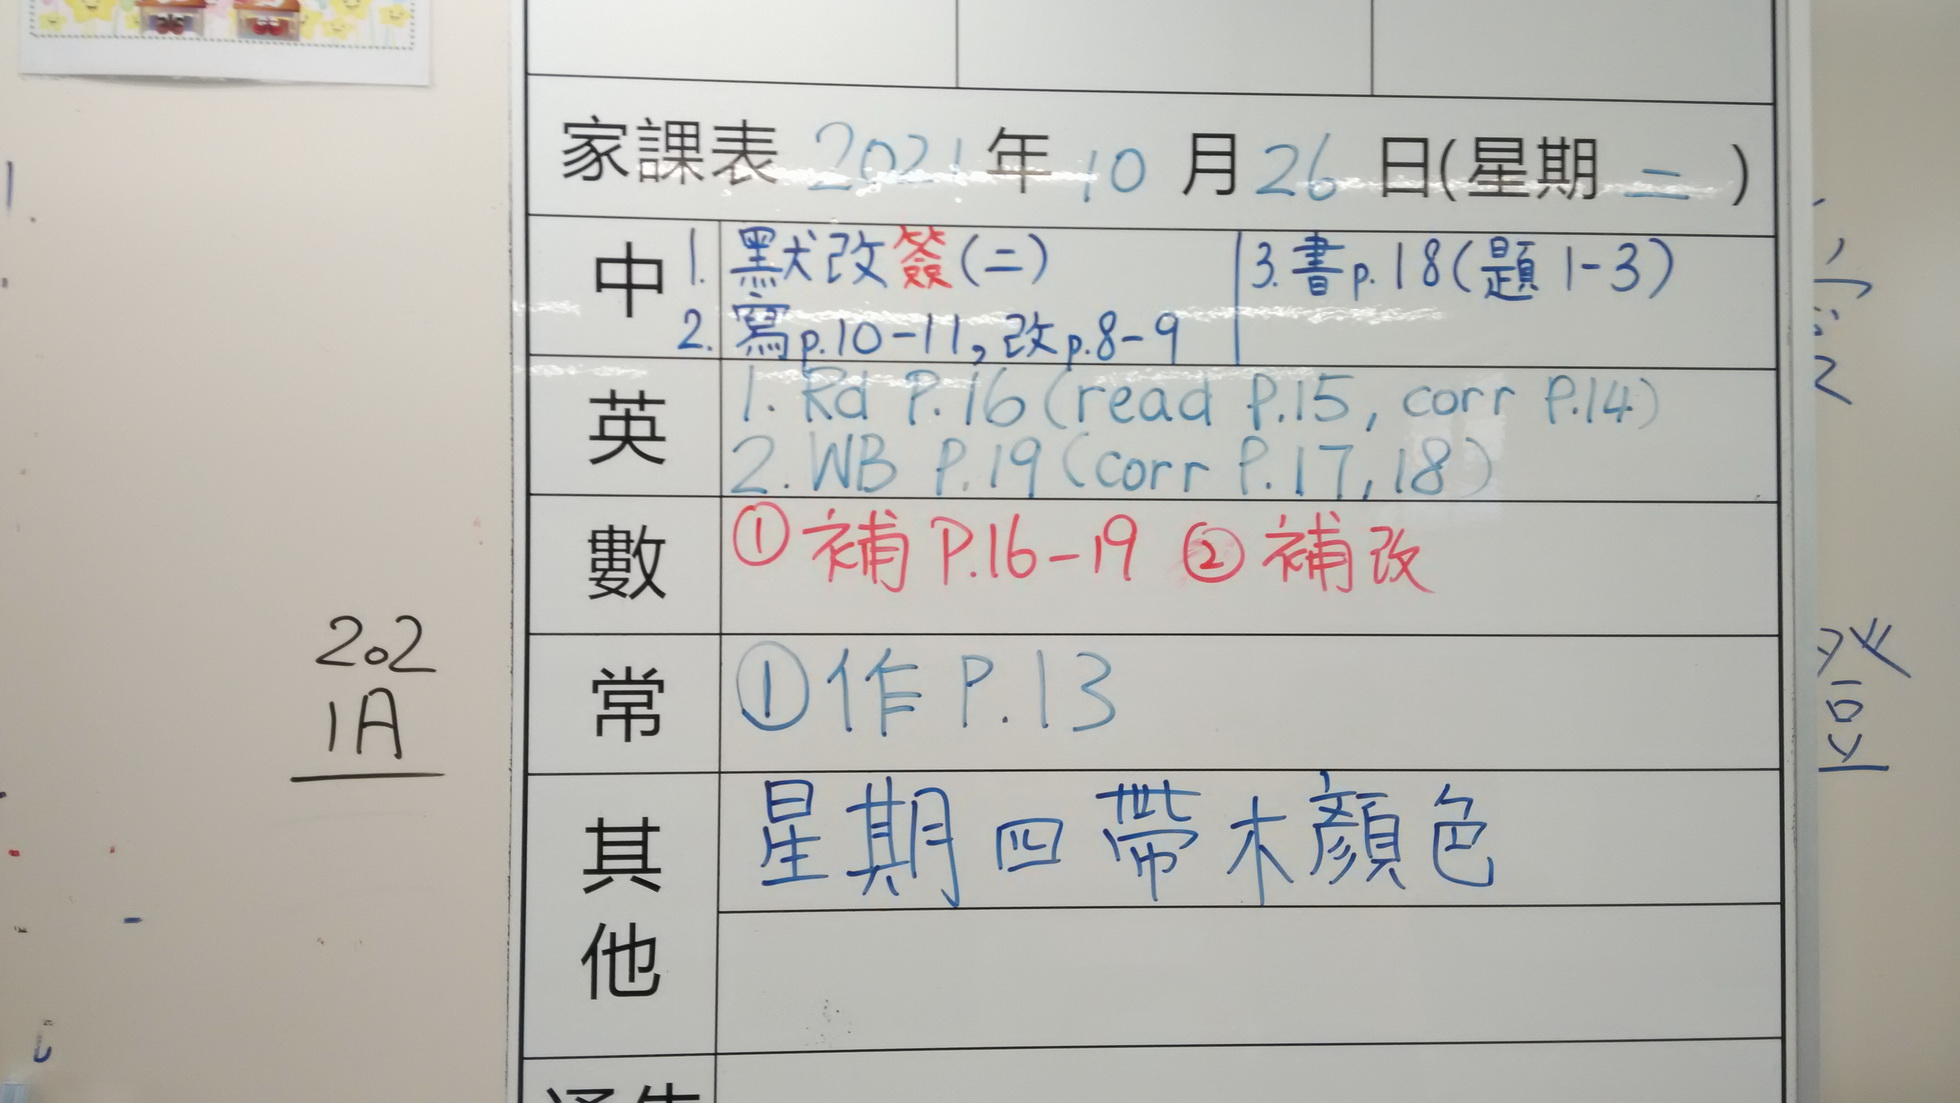 家課表 2021 年 10 月 26 日(星期 二 )
中
1. 默改簽(二)
2. 寫p.10-11,改p.8-9
3. 書p.18(題1-3)
英
1. Rd P.16(read P.15, corr P.14)
2. WB P.19(corr P.17,18)
數
① 補 P.16-19 ② 補改
常
① 作 P.13
其他
星期四帶木顏色
202
1A